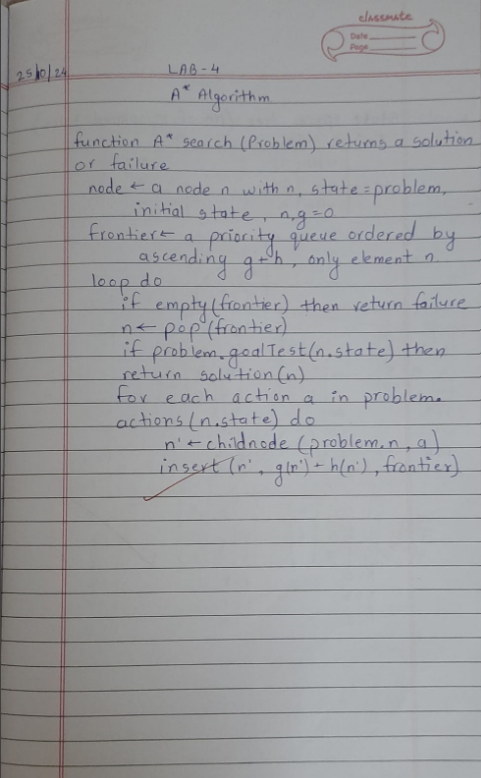 classmate
Date
Page
25/10/24
LAB-4
A* Algorithm
function A* search (Problem) returns a solution
or failure
node ← a node n with n, state = problem,
initial state, n,g=0
frontier ← a priority queue ordered by
ascending g+h, only element n
loop do
if empty(frontier) then return failure
n ← pop(frontier)
if problem.goalTest(n.state) then
return solution(n)
for each action a in problem.
actions(n.state) do
n' ← childnode (problem, n, a)
insert (n', g(n') + h(n'), frontier)